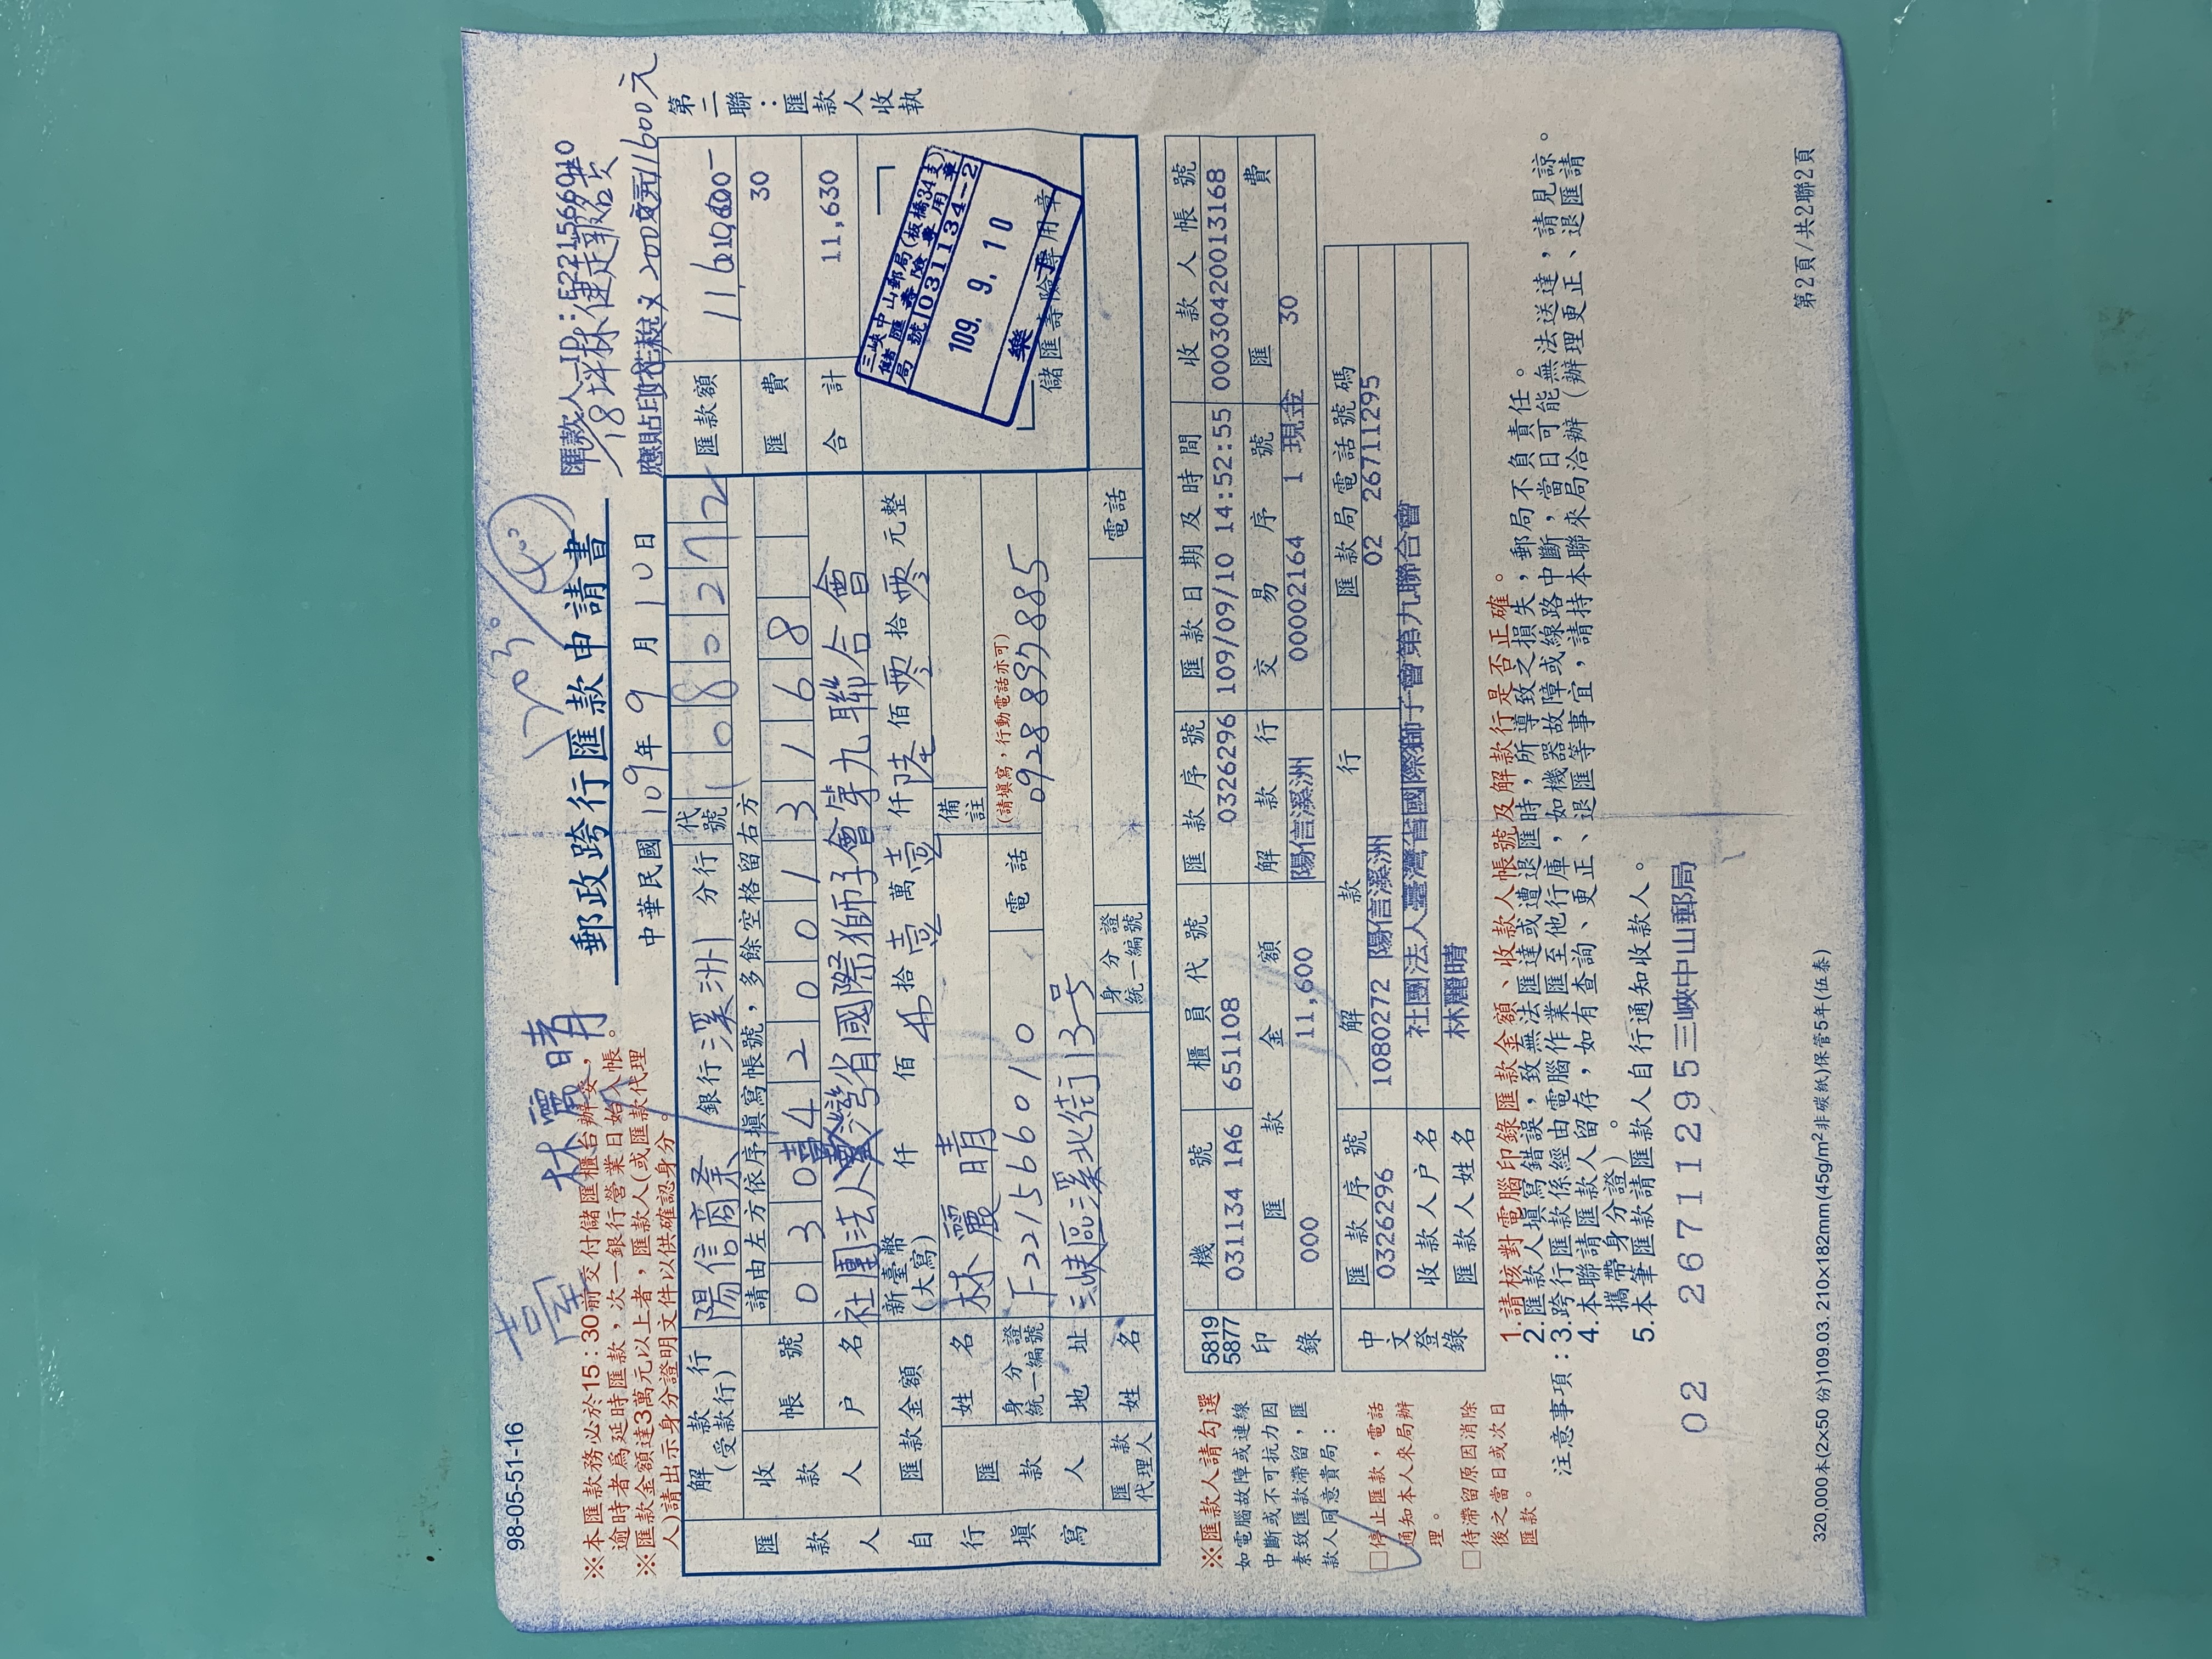 98-05-51-16
林麗晴
郵政跨行匯款申請書
匯款人ID:F221566010
18坪林健走報名費
200×元11600元
※本匯款務必於15:30前交付儲匯櫃台辦妥,
逾時者為延時匯款,次一銀行營業日始入帳。
※匯款金額達3萬元以上者,匯款人(或匯款代理
人)請出示身分證明文件以供確認身分。
中華民國109年9月10日
第二聯:匯款人收執
解款行(受款行) 陽信商業 銀行 溪洲 分行 代號 1080272
匯款額 11,600-
請由左方依序填寫帳號,多餘空格留右方
收款人 帳號 030420013168
匯費 30
戶名 社團法人臺灣省國際獅子會第九聯合會
合計 11,630
匯款金額 新臺幣(大寫) 仟 佰 拾壹萬壹仟陸佰零拾零元整
匯款人 姓名 林麗晴 備註
身分證統一編號 F221566010 電話 (請填寫,行動電話亦可) 0928897885
地址 三峽區溪北街13号
匯款代理人 姓名 身分證統一編號 電話
匯款人自行填寫
三峽中山郵局(板橋34支)
儲匯壽險專用章
局號031134-2
109. 9. 10
樂
儲匯壽險專用章
※匯款人請勾選
如電腦故障或連線
中斷或不可抗力因
素致匯款滯留,匯
款人同意貴局:
□停止匯款,電話
通知本人來局辦
理。
□待滯留原因消除
後之當日或次日
匯款。
5819
5877
印錄
機號 櫃員代號 匯款序號 匯款日期及時間 收款人帳號
031134 1A6 651108 0326296 109/09/10 14:52:55 0003042001​3168
匯款金額 解款行 交易序號 匯費
000 11,600 陽信溪洲 00002164 1 現金 30
中文登錄
匯款序號 解款行 匯款局電話號碼
0326296 1080272 陽信溪洲 02 26711295
收款人戶名 社團法人臺灣省國際獅子會第九聯合會
匯款人姓名 林麗晴
注意事項:1.請核對電腦印錄匯款金額、收款人帳號及解款行是否正確。
2.匯款人填寫錯誤,致無法匯達或遭退匯時,所導致之損失,郵局不負責任。
3.跨行匯款係經由電腦作業匯至他行庫,如機器故障或線路中斷,當日可能無法送達,請見諒。
4.本聯請匯款人留存,如有查詢、更正、退匯等事宜,請持本聯來局洽辦(辦理更正、退匯請
攜帶身分證)。
5.本筆匯款請匯款人自行通知收款人。
02 26711295三峽中山郵局
320,000本(2x50份)109.03. 210×182mm(45g/m²非碳紙)保管5年(伍泰)
第2頁/共2聯2頁